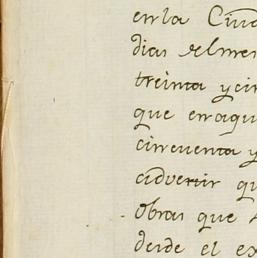 en la Ciud
dias del mes
treinta y cin
que en aqu
cincuenta y
advertir qu
Obras que
desde el ex